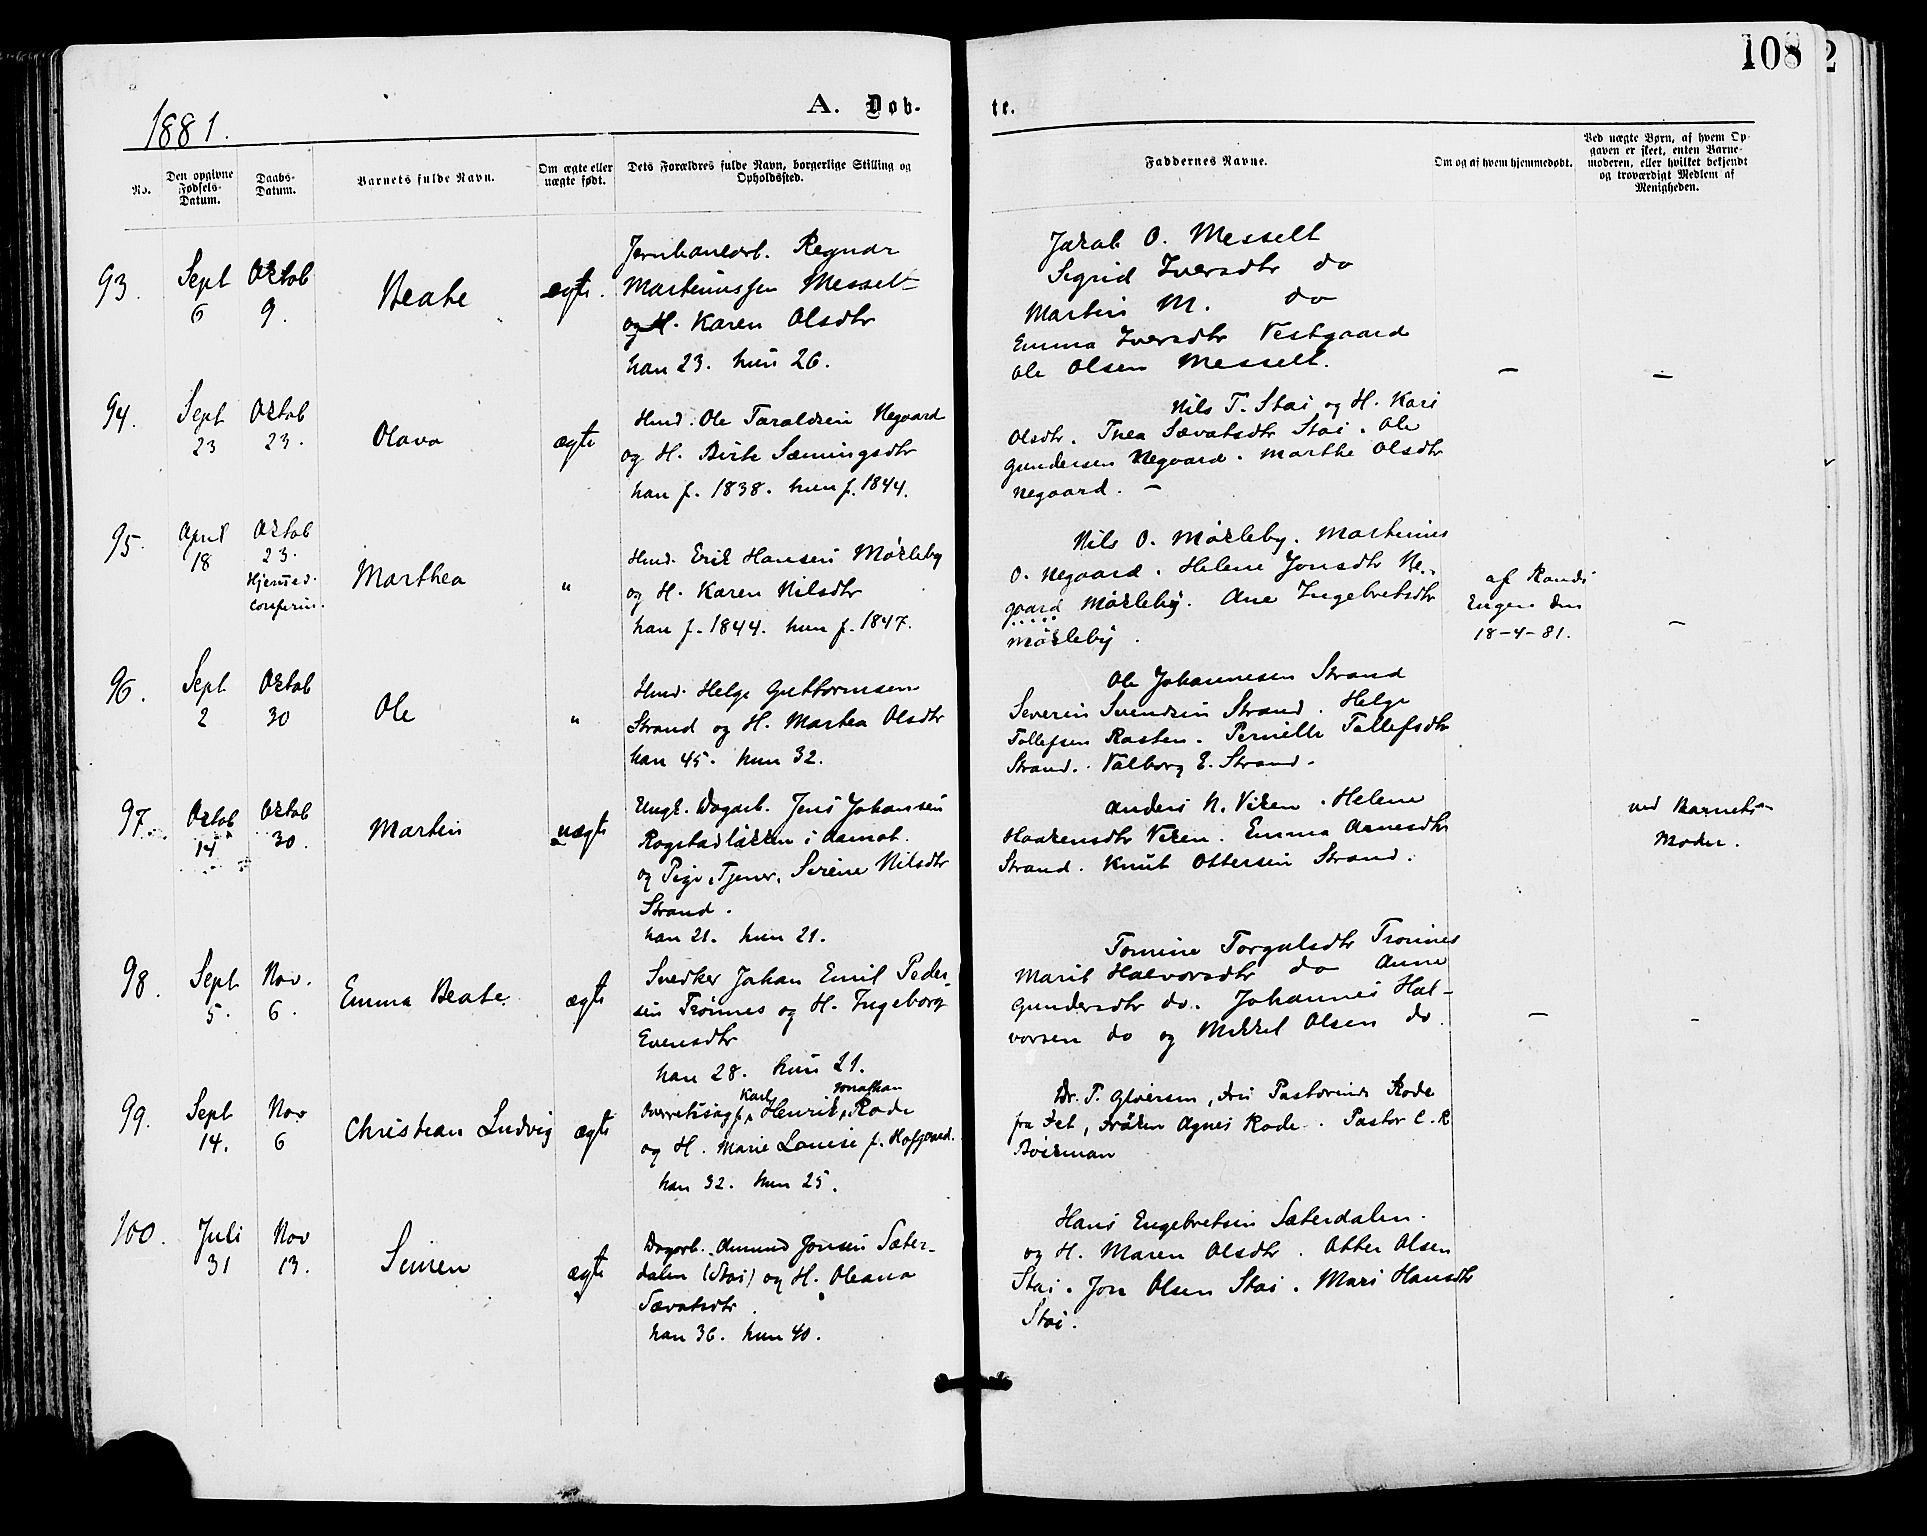 108
2
1881.
A. Døb-
te.
No.
Den opgivne Fødsels-Datum.
Daabs-Datum.
Barnets fulde Navn.
Om ægte eller uægte født.
Dets Forældres fulde Navn, borgerlige Stilling og Opholdssted.
Faddernes Navne.
Om og af hvem hjemmedøbt.
Ved uægte Børn, af hvem Op-
gaven er skeet, enten Barne-
moderen, eller hvilket bekjendt
og troværdigt Medlem af
Menigheden.
93.
Sept
6
Oktob
9.
Beate
ægte.
Jernbanearb. Regnar
Martinussen Messelt
og H. Karen Olsdtr
han 23. hun 26.
Jakob O. Messelt
Sigrid Iversdtr do
Martin M. do
Emma Iversdtr Vestgaard
Ole Olsen Messelt.
–
–
94.
Sept
23
Oktob
23.
Olava
ægte
Husd. Ole Taraldsen Negaard
og H. Birte Sæmingsdtr
han f. 1838. hun f. 1844.
Nils T. Stai og H. Kari
Olsdtr. Thea Sævatsdtr Stai. Ole
Gundersen Negaard. Marthe Olsdtr
Negaard. –
95.
April
18
Oktob
23.
Hjemmed.
confirm.
Marthea
"
Husd. Erik Hansen Mørkby
og H. Karen Nilsdtr
han f. 1844. hun f. 1847.
Nils O. Mørkby. Martinus
O. Negaard. Helene Jonsdtr Ne-
gaard Mørkby. Ane Ingebretsdtr
Mørkby.
af Randi
Engen den
18-4-81.
–
96.
Sept
2
Oktob
30
Ole
"
Husd. Helge Guttormsen
Strand og H. Martea Olsdtr
han 45. hun 32.
Ole Johannesen Strand
Severin Svendsen Strand. Helge
Tollefsen Rasten. Pernille Tollefsdtr
Strand. Valborg E. Strand.
97.
Oktob
14
Oktob
30.
Martin
uægte
Ungk. Dagarb. Jens Johansen
Rogstadløkken i Aamot.
og Pige, Tjener, Serine Nilsdtr
Strand.
han 21. hun 21.
Anders N. Viken. Helene
Haakensdtr Viken. Emma Arnesdtr
Strand. Knut Ottersen Strand.
ved Barnets
Moder.
98.
Sept
5.
Nov.
6.
Emma Beate.
ægte
Snedker Johan Emil Peder-
sen Trønnes og H. Ingeborg
Evensdtr
han 28. hun 21.
Tomine Torgalsdtr Trønnes
Marit Halvorsdtr do Anne
Gundersdtr do. Johannes Hal-
vorsen do og Mikkel Olsen do.
–
–
99.
Sept
14.
Nov
6
Christian Ludvig
ægte
Karl Jonathan
Overretssagf. Henrik Rode
og H. Marie Louise f. Hofgaard.
han 32. hun 25.
Dr. P. Gløersen, Fru Pastorinde Rode
fra Fet, Frøken Agnes Rode. Pastor C. R
Bøckman
100.
Juli
31
Nov
13.
Simen
ægte
Dagarb. Amund Jonsen Sæter-
dalen (Stai) og H. Oleana
Sævatsdtr.
han 36. hun 40.
Hans Engebretsen Sæterdalen.
og H. Maren Olsdtr. Otter Olsen
Stai. Jon Olsen Stai. Mari Hansdtr
Stai.